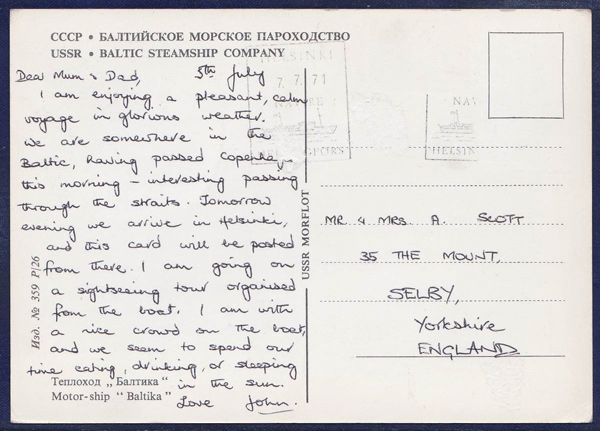 СССР • БАЛТИЙСКОЕ МОРСКОЕ ПАРОХОДСТВО
USSR • BALTIC STEAMSHIP COMPANY
Dear Mum & Dad, 5th July
I am enjoying a pleasant, calm
voyage in glorious weather.
We are somewhere in the
Baltic, having passed Copenhagen
this morning – interesting passing
through the straits. Tomorrow
evening we arrive in Helsinki,
and this card will be posted
from there. I am going on
a sightseeing tour organised
from the boat. I am with
a nice crowd on the boat,
and we seem to spend our
time eating, drinking, or sleeping
in the sun.
Love John.
Теплоход „Балтика"
Motor-ship "Baltika"
Изд. № 359 Р|26
USSR MORFLOT
HELSINKI
7. 7. 71
MR & MRS. A. SCOTT
35 THE MOUNT,
SELBY,
Yorkshire
ENGLAND